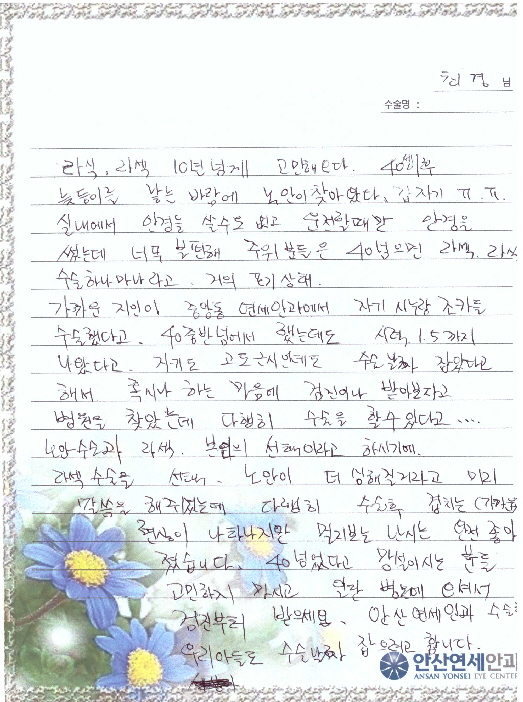 최 경 님
수술명 :
라식, 라섹 10년 넘게 고민해 왔다. 40세 이후
늦둥이를 낳는 바람에 노안이 찾아왔다. 갑자기 ㅠ.ㅠ.
실내에서 안경을 쓸수도 없고 운전할때만 안경을
썼는데 너무 불편해 주위 분들은 40넘으면 라섹, 라식
수술하나마나라고. 거의 포기상태.
가까운 지인이 중앙동 연세안과에서 자기 시누랑 조카들
수술했다고. 40중반 넘어서 했는데도 시력 1.5 까지
나왔다고. 자기도 고도근시인데도 수술 날짜 잡았다고
해서 혹시나 하는 마음에 검진이나 받아보자고
병원을 찾았는데 다행히 수술을 할수 있다고....
노안수술과 라섹. 본인의 선택이라고 하시기에.
라섹 수술을 선택. 노안이 더 심해질거라고 미리
말씀을 해주셨는데 다행히 수술후 겹치는 (가까운
현상이 나타나지만 멀리보는 난시는 먼저 좋아
졌습니다. 40넘었다고 망설이시는 분들
고민하지 마시고 일단 병원에 오셔서
검진부터 받으세요. 안산연세안과 수술
우리아들도 수술날짜 잡으려고 합니다.
안산연세안과
ANSAN YONSEI EYE CENTER